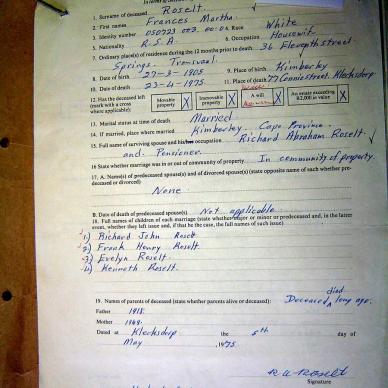 1. Surname of deceased Roselt
2. First names Frances Martha
3. Identity number 050723 003 00.0A Race White
5. Nationality R.S.A. 6. Occupation Housewife
7. Ordinary place(s) of residence during the 12 months prior to death 36 Eleventh street
Springs, Transvaal.
8. Date of birth 27-3-1905 9. Place of birth Kimberley
10. Date of death 23-4-1975. 11. Place of death 77 Connie street, Klerksdorp
12. Has the deceased left (mark with a cross where applicable): Movable property X Immovable property X A will X An estate exceeding R2,000 in value X
13. Marital status at time of death Married
14. If married, place where married Kimberley, Cape Province.
15. Full name of surviving spouse and his occupation Richard Abraham Roselt
and Pensioner.
16 State whether marriage was in or out of community of property In community of property.
17. A. Name(s) of predeceased spouse(s) and divorced spouse(s) (state opposite name of each whether predeceased or divorced)
None
B. Date of death of predeceased spouse(s) Not applicable
18. Full names of children of each marriage (state whether major or minor or predeceased and, in the latter
event, whether they left issue and, if that be the case, the full names of such issue)
1) Richard John Roselt
2) Frank Henry Roselt
3) Evelyn Roselt.
4) Kenneth Roselt.
19. Names of parents of deceased (state whether parents alive or deceased): Deceased died long ago.
Father 1918.
Mother
Dated at Klerksdorp the 5th day of
May 1975.
R A Roselt
Signature